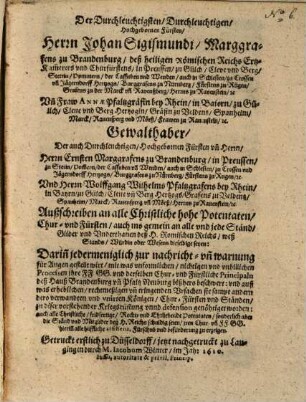 Der Durchleuchtigsten / Durchleuchtigen /
Hochgebornen Fürsten /
Herrn Johan Sigismundi / Marggra-
fens zu Brandenburg / deß heiligen Römischen Reichs Ertz-
Kämerers und Churfürstens / in Preussen / zu Gülich / Cleve und Berg /
Stettin / Pommern / der Cassuben und Wenden / auch in Schlesien / zu Crossen
und Jägerndorff Hertzogs / Burggrafens zu Nürnberg / Fürstens zu Rügen /
Graffens zu der Marck und Ravenspurg / Herrn zu Ravenstein / ꝛc.
Vñ Fraw ANNA Pfaltzgräfin bey Rhein / in Baiorn / zu Gü-
lich / Cleve und Berg Hertzogin / Gräfin zu Veldentz / Spanheim /
Marck / Ravenspurg und Mörß / Frawen zu Ravenstein / ꝛc.
Gewalthaber /
Der auch Durchleuchtigen / Hochgebornen Fürsten vñ Herrn /
Herrn Ernsten Marggrafens zu Brandenburg / in Preussen /
zu Stettin / Pommern / der Cassuben vñ Wenden / auch in Schlesien / zu Crossen und
Jägerndorff Hertzogs / Burggrafens zu Nürnberg / Fürstens zu Rügen / ꝛc.
Und Herrn Wolffgang Wilhelms Pfaltzgrafens bey Rhein /
in Bayern zu Gülich / Cleve vñ Berg Hertzogs / Grafens zu Veldentz /
Spanheim / Marck / Ravenspurg vñ Mörß / Herrn zu Ravenstein / ꝛc.
Außschreiben an alle Christliche hohe Potentaten /
Chur- und Fürsten / auch ins gemein an alle und jede Ständ /
Glider und Underthanen deß H. Römischen Reichs / weß
Stands / Würden oder Wesens dieselbige seyen:
Dariñ jedermeniglich zur nachricht / vñ warnung
für Augen gestellt wirt / mit was
Processen ihre FF GG. und derselben Chur- und Fürstliche Principaln
deß Hauß Brandenburg vñ Pfaltz Neuburg bißhero beschwert / und auß
was erheblichen / rechtmessigen vñ tringenden Ursachen
verwandten und vereinten Königen / Chur- Fürsten und Ständen /
zu
auch alle Christliche / fridfertige / Rechts und Ehrliebende Potentaten / sonderlich aber
die Ständ und Mitglider deß H. Reichs schuldig seyen / irem Chur- vñ FF GG.
hierinn alle hülff
Getruckt erstlich zu Düsseldorff / jetzt nachgetruckt zu Lau-
gingen durch M. Iacobum Winter / im Jahr 1610.